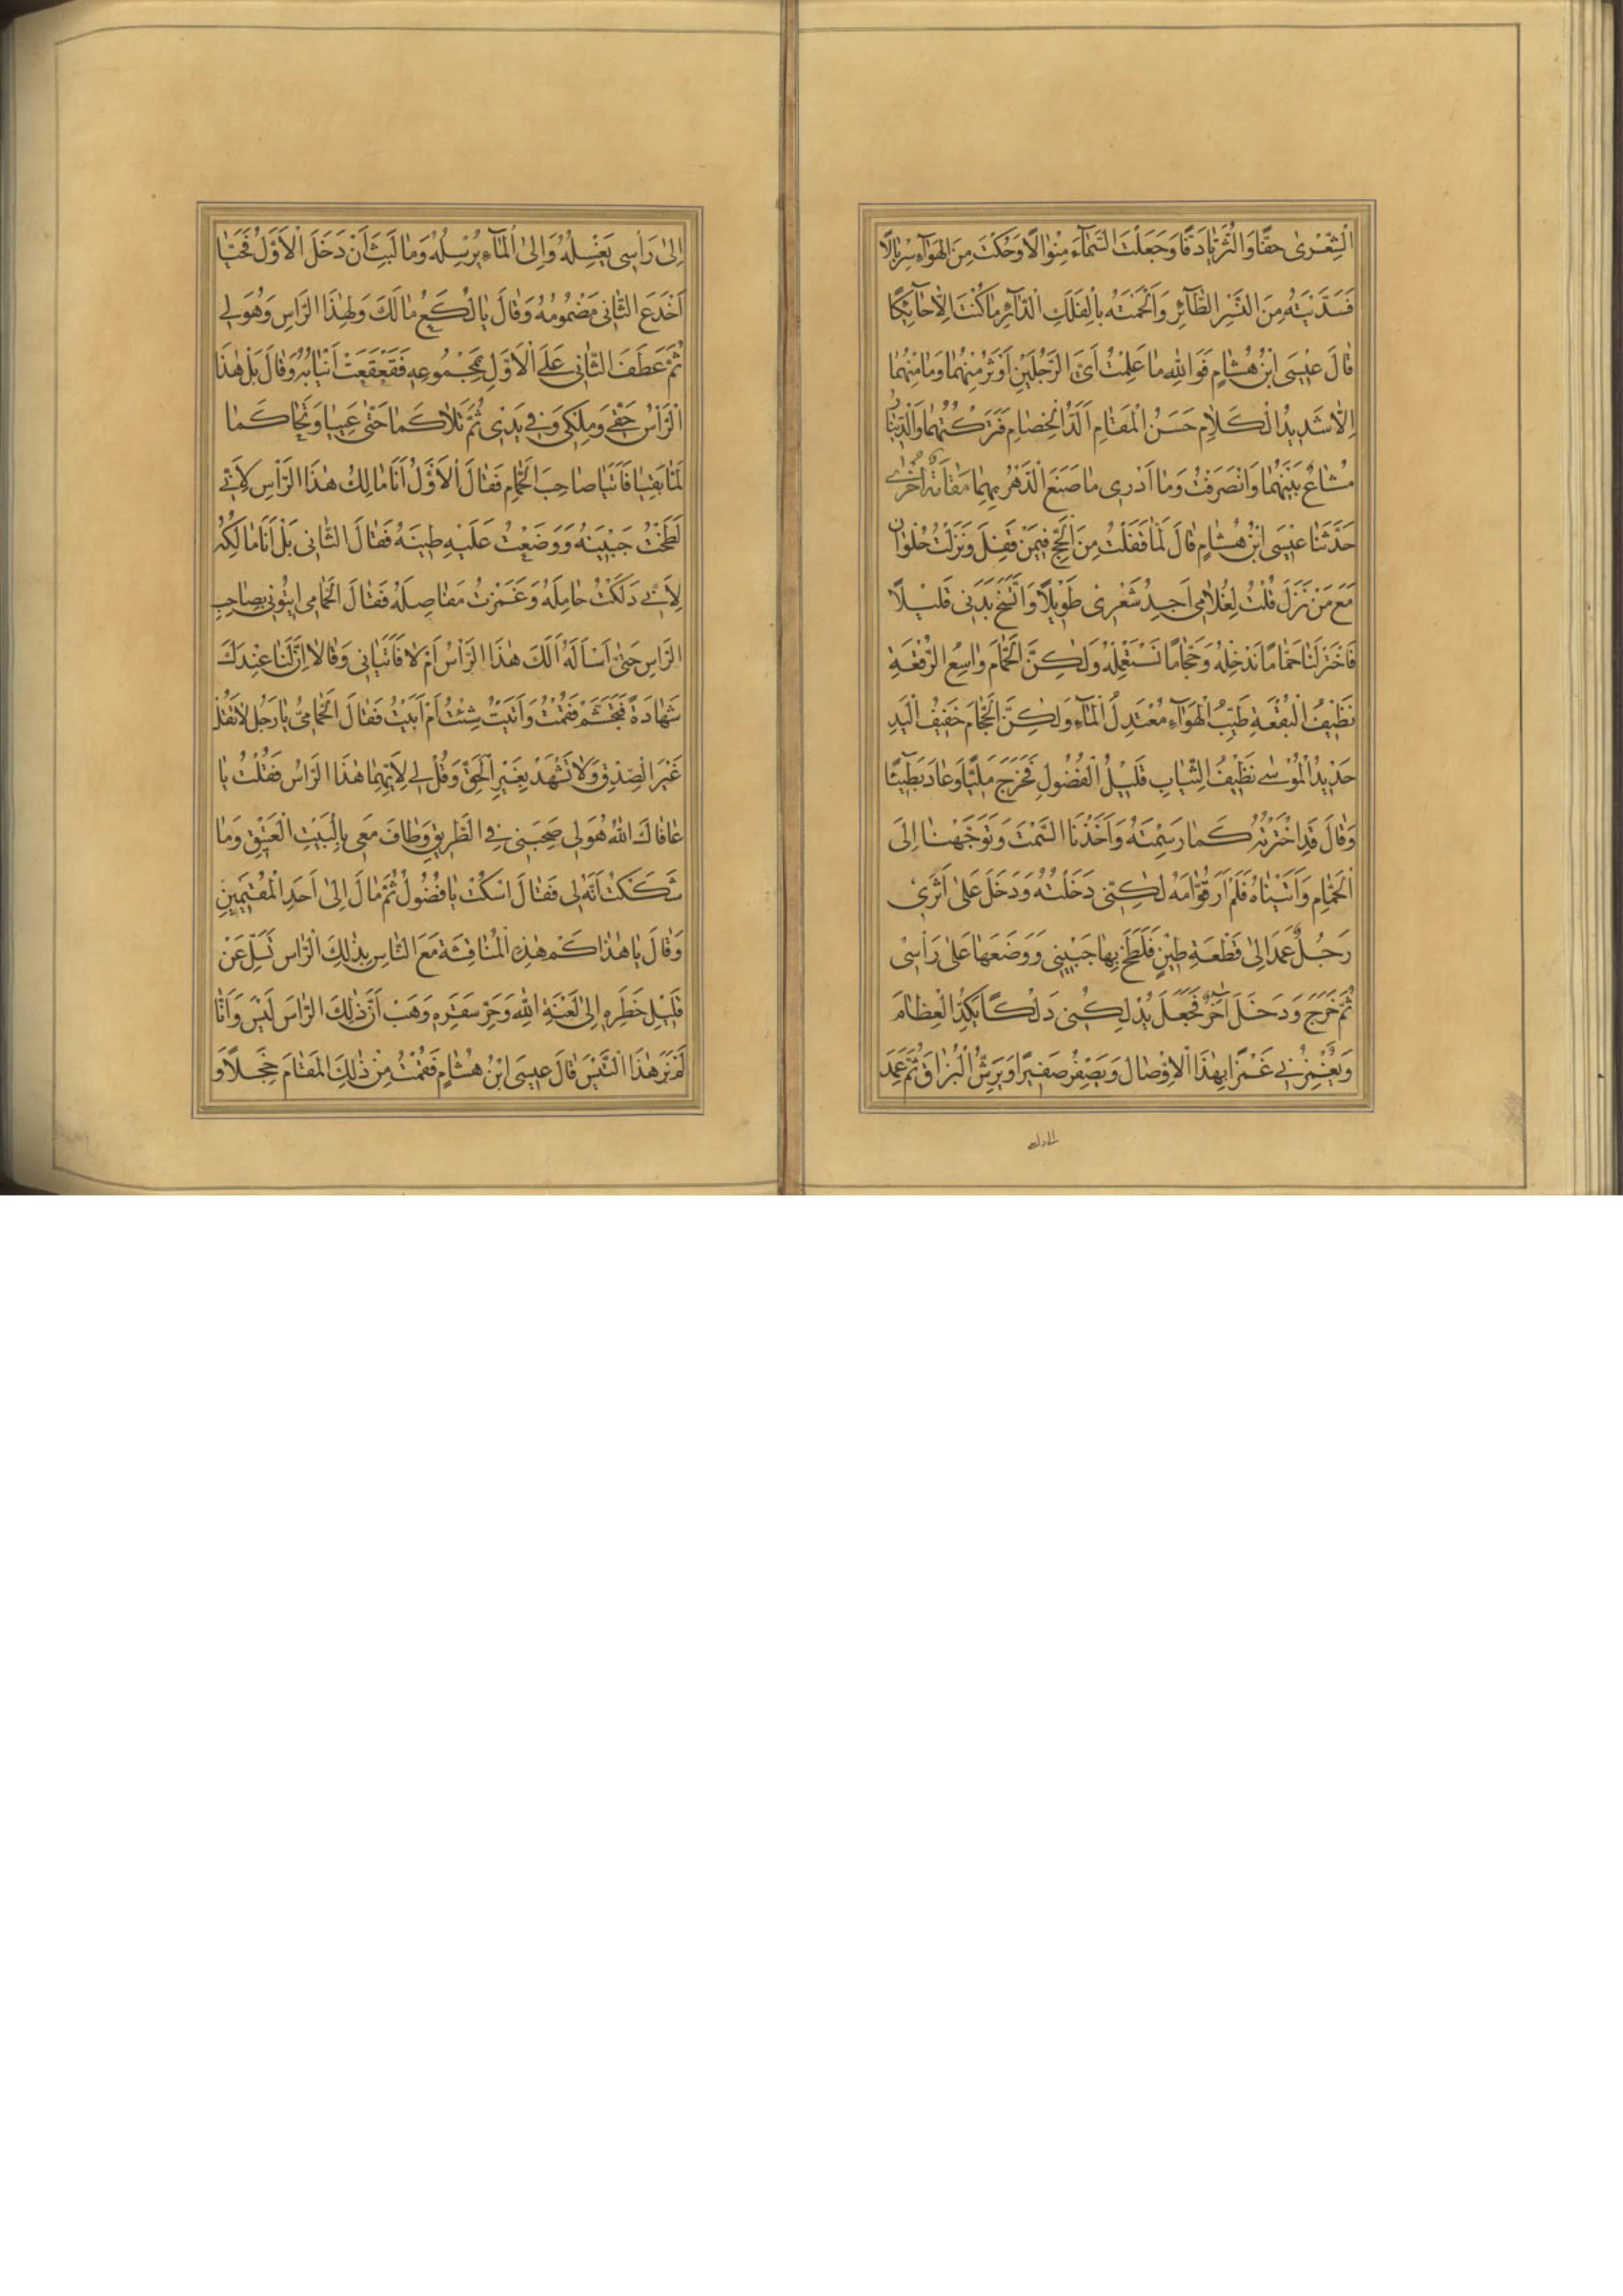 الشِّعْرىٰ حقًّا وَ الثُّرَيّا دَفًّا وَ جَعَلْتَ السَّمٰآءَ مِنْوٰالًا وَ حُكْتَ مِنَ الْهَوٰآءِ سِرْبٰالًا
فَسَدَّيْتَهُ مِنَ النَّسْرِ الطّٰآئِرِ وَ اَلْحَمْتَهُ بِالْفَلَكِ الدّٰآئِرِ مٰا كُنْتَ اِلّٰا حٰآئِكًا
قٰالَ عيسَى ابْنُ هِشٰامٍ فَوَ اللهِ مٰا عَلِمْتُ اَىَّ الرَّجُلَيْنِ اُوثِرُ مِنْهُمٰا وَ مٰا مِنْهُمٰا
اِلّٰا شَديدُ الْكَلٰامِ حَسَنُ الْمَقٰامِ اَلَدُّ الْخِصٰامِ فَتَرَكْتُهُمٰا وَ الدّينٰارُ
مُشٰاعٌ بَيْنَهُمٰا وَ انْصَرَفْتُ وَ مٰا اَدْرى مٰا صَنَعَ الدَّهْرُ بِهِمٰا مَقٰامَةٌ اُخْرٰى
حَدَّثَنٰا عيسَى ابْنُ هِشٰامٍ قٰالَ لَمّٰا قَفَلْتُ مِنَ الْحَجِّ فيمَنْ قَفَلَ وَ نَزَلْتُ حُلْوٰانَ
مَعَ مَنْ نَزَلَ قُلْتُ لِغُلٰامى اَجِدُ شَعْرى طَويلًا وَ اتَّسَخَ بَدَنى قَليلًا
فَاخْتَرْ لَنٰا حَمّٰامًا نَدْخُلْهُ وَ حَجّٰامًا نَسْتَعْمِلْهُ وَ لٰكِنَّ الْحَمّٰامَ وٰاسِعُ الرُّقْعَةِ
نَظيفُ الْبُقْعَةِ طَيِّبُ الْهَوٰآءِ مُعْتَدِلُ الْمٰآءِ وَ لٰكِنَّ الْحَجّٰامَ خَفيفُ الْيَدِ
حَديدُ الْمُوسٰى نَظيفُ الثِّيٰابِ قَليلُ الْفُضُولِ فَخَرَجَ مَلِيًّا وَ عٰادَ بَطيئًا
وَ قٰالَ قَدِ اخْتَرْتُهُ كَمٰا رَسَمْتَهُ وَ اَخَذْنَا السَّمْتَ وَ تَوَجَّهْنٰا اِلَى
الْحَمّٰامِ وَ اَتَيْنٰاهُ فَلَمْ اَرَ قُوّٰامَهُ لٰكِنّى دَخَلْتُهُ وَ دَخَلَ عَلىٰ اَثَرى
رَجُلٌ عَمَدَ اِلىٰ قِطْعَةِ طينٍ فَلَطَخَ بِهٰا جَبينى وَ وَضَعَهٰا عَلىٰ رَاْسى
ثُمَّ خَرَجَ وَ دَخَلَ اٰخَرُ فَجَعَلَ يَدْلِكُنى دَلْكًا يَكُدُّ الْعِظٰامَ
وَ يَغْمِزُنى غَمْزًا يَهُدُّ الْاَوْصٰالَ وَ يَصْفِرُ صَفيرًا وَ يَرُشُّ الْبُزٰاقَ ثُمَّ عَمَدَ
اِلىٰ رَاْسى يَغْسِلُهُ وَ اِلىٰ الْمٰآءِ يُرْسِلُهُ وَ مٰا لَبِثَ اَنْ دَخَلَ الْاَوَّلُ فَحَيّٰا
اَخْدَعَ الثّٰانى مَضْمُومُهُ وَ قٰالَ يٰا لُكَعُ مٰا لَكَ وَ لِهٰذَا الرَّاْسِ وَ هُوَ لى
ثُمَّ عَطَفَ الثّٰانى عَلَى الْاَوَّلِ بِمَجْمُوعِهِ فَقَعْقَعَتْ اَنْيٰابُهُ وَ قٰالَ بَلْ هٰذَا
الرَّاْسُ حَقّى وَ مِلْكى وَ فى يَدى ثُمَّ تَلٰاكَمٰا حَتّىٰ عَيِيٰا وَ تَحٰاكَمٰا
لَمّٰا بَقِيٰا فَاَتَيٰا صٰاحِبَ الْحَمّٰامِ فَقٰالَ الْاَوَّلُ اَنَا مٰالِكُ هٰذَا الرَّاْسِ لِاَنّى
لَطَخْتُ جَبينَهُ وَ وَضَعْتُ عَلَيْهِ طينَهُ فَقٰالَ الثّٰانى بَلْ اَنَا مٰالِكُهُ
لِاَنّى دَلَكْتُ حٰامِلَهُ وَ غَمَزْتُ مَفٰاصِلَهُ فَقٰالَ الْحَمّٰامى ايتُونى بِصٰاحِبِ
الرَّاْسِ حَتّىٰ اَسْاَلَهُ اَلَكَ هٰذَا الرَّاْسُ اَمْ لٰا فَاَتَيٰانى وَ قٰالٰا اِنَّ لَنٰا عِنْدَكَ
شَهٰادَةً فَتَجَشَّمْ فَقُمْتُ وَ اَتَيْتُ شِئْتُ اَمْ اَبَيْتُ فَقٰالَ الْحَمّٰامِىُّ يٰا رَجُلُ لٰا تَقُلْ
غَيْرَ الصِّدْقِ وَ لٰا تَشْهَدْ بِغَيْرِ الْحَقِّ وَ قُلْ لى لِاَيِّهِمٰا هٰذَا الرَّاْسُ فَقُلْتُ يٰا
عٰافٰاكَ اللهُ هُوَ لى صَحِبَنى فِى الطَّريقِ وَ طٰافَ مَعى بِالْبَيْتِ الْعَتيقِ وَ مٰا
شَكَكْتُ اَنَّهُ لى فَقٰالَ اسْكُتْ يٰا فُضُولُ ثُمَّ مٰالَ اِلىٰ اَحَدِ الْمُقيمينَ
وَ قٰالَ يٰا هٰذٰا كَمْ هٰذِهِ الْمُنٰافَسَةُ مَعَ النّٰاسِ بِذٰلِكَ الرّٰاسِ تَسَلَّ عَنْ
قَليلِ خَطَرِهِ اِلىٰ لَعْنَةِ اللهِ وَ حَرِّ سَقَرِهِ وَ هَبْ اَنَّ ذٰلِكَ الرّٰاسَ لَيْسَ وَ اَنّٰا
لَمْ نَرَ هٰذَا التَّيْسَ قٰالَ عيسَى ابْنُ هِشٰامٍ فَقُمْتُ مِنْ ذٰلِكَ الْمَقٰامِ خَجَلًا وَ